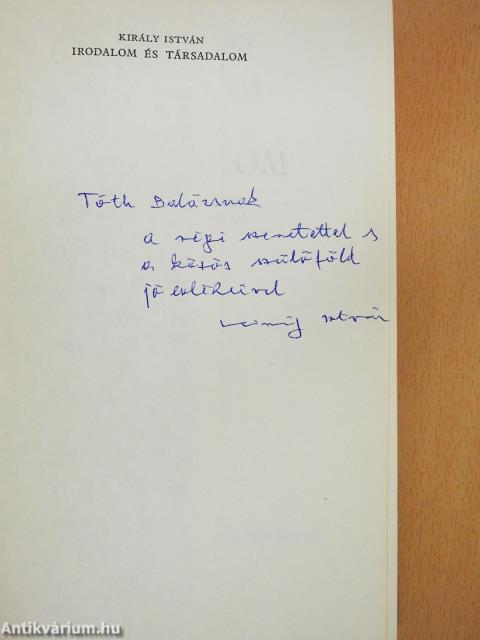 KIRÁLY ISTVÁN
IRODALOM ÉS TÁRSADALOM
Tóth Balázsnak
a régi szeretettel s
a közös szülőföld
jó emlékeivel
Király István
Antikvárium.hu